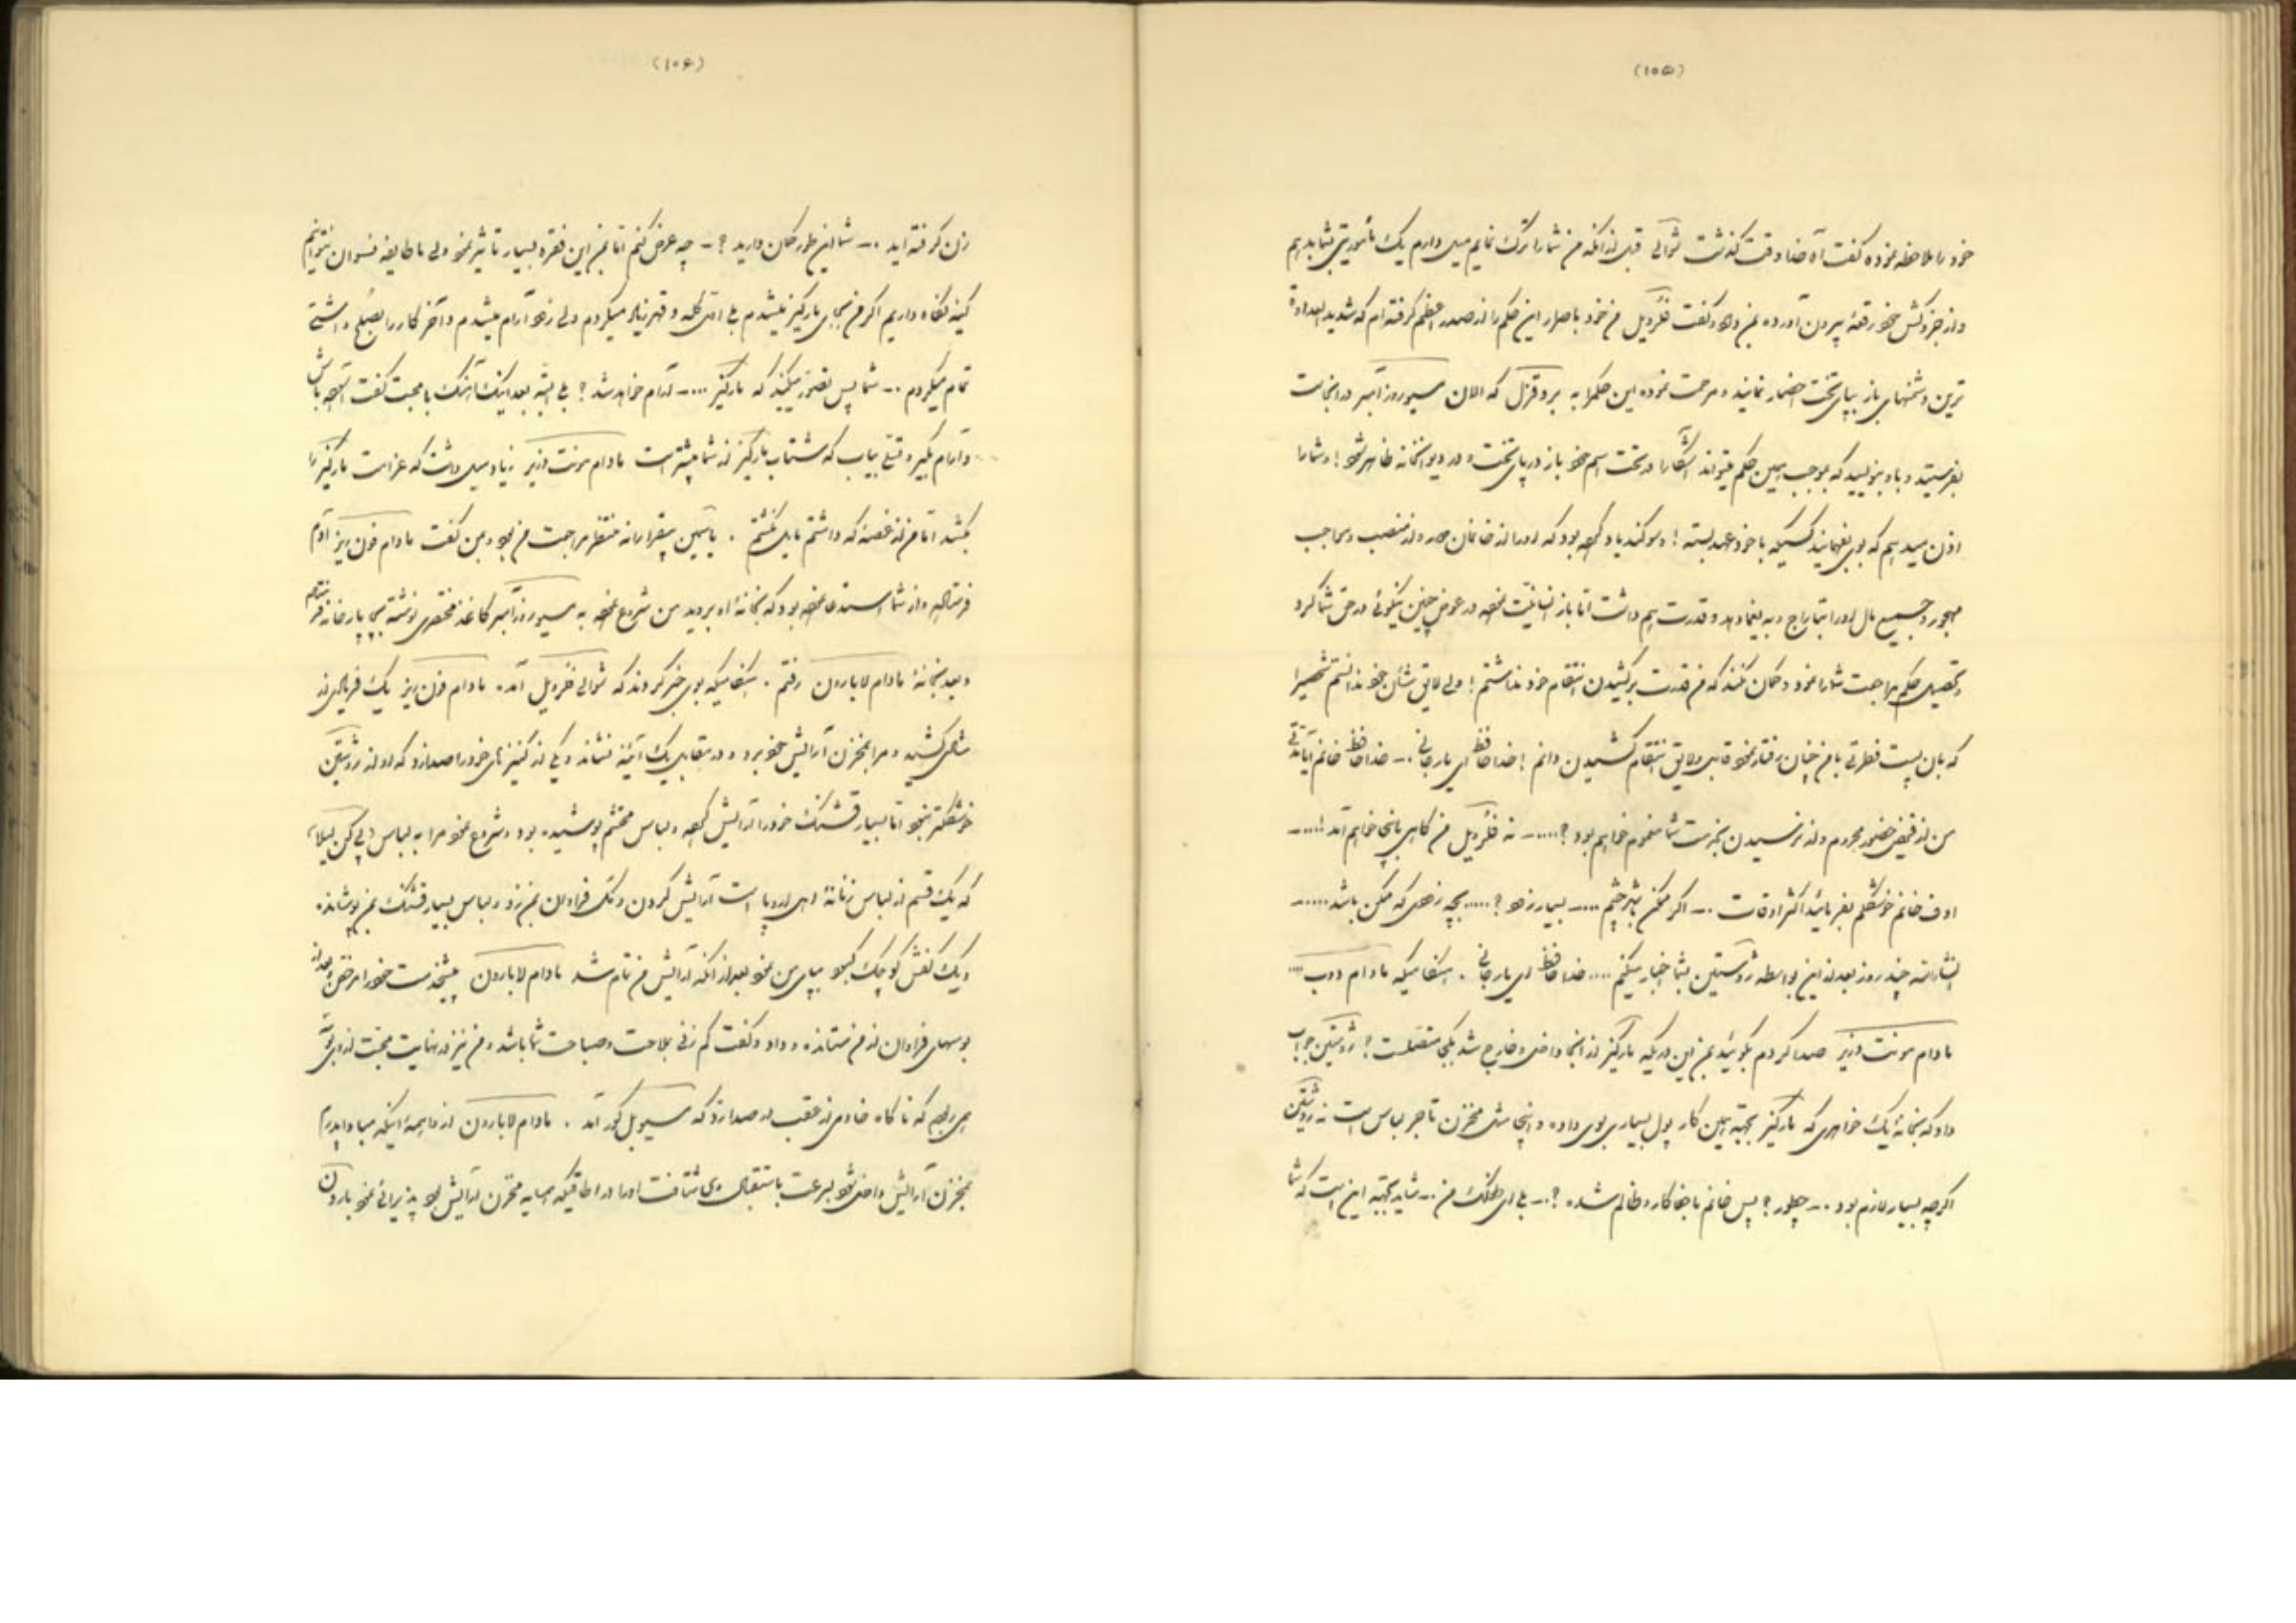 (۱۰۵)
خود را ملاحظه نموده گفت آه خدا وقت گذشت شوالی قبل از آنکه من شما را ترک نمایم میل دارم یک مأموریتی بشما بدهم
و از جزوکش خود رقعهٔ بیرون آورده بمن داد و گفت فلرویل من خود باصرار این حکم را از صدر اعظم گرفته‌ام که شدید العداوة
ترین دشمنهای باز بپای تخت احضار نمایند و مرحمت نموده این حکم را به بروقزل که الان مسیو روزآمبر در آنجاست
بفرستید و باو بنویسید که بموجب همین حکم میتواند آشکارا در تحت اسم خود باز در پای تخت و در دیوانخانه ظاهر شود! و شما را
اذن میدهم که بوی بفهمانید کسیکه با خود عهد بسته! و سوگند یاد کرده بود که او را از خانمان و از منصب و مواجب
مهجور و جمیع مال او را بتاراج و به یغما دهد و قدرت هم داشت اما باز انسانیت نموده در عوض چنین نیکوئی در حق شما کرد
و تحصیل حکم مراجعت شما را نمود و گمان نکنند که من قدرت بر کشیدن انتقام خود نداشتم! ولی لایق شأن خود ندانستم شخصی را
که بآن پست فطرتی با من چنان رفتار نمود قابل و لایق انتقام کشیدن دانم! خدا حافظ ای یار جانی .-- خدا حافظ خانم آیا مدتی
من از فیض حضور محروم و از نرسیدن بخدمت شما مغموم خواهم بود؟.....-- نه فلرویل من گاهی باینجا خواهم آمد!....--
اوف خانم خوشگلم بفرمائید اکثر اوقات .-- اگر ممکن باشد چشم ....-- بسیار زود؟..... بچه زودی که ممکن باشد.....--
انشاء الله چند روز بعد از این بواسطه رُوستین بشما اخبار میکنم .... خدا حافظ ای یار جانی . هنگامیکه مادام دوب....
مادام مونت وزیر صدا کردم بگوئید بمن این در یکه مارکیز از اینجا داخل و خارج شد بکجا متصلست؟ رُوستین جواب
داد که بخانهٔ یک خواهری که مارکیز بجهة همین کار پول بسیاری بوی داده و اینجا مثل مخزن تاجر لباس است نه رُوستین
اگرچه بسیار لازم بود .-- چطور؟ پس خانم ما جفا کار و ظالم شده ؟.-- بلی ای طفلک من .-- شاید بجهة این است که شما
(۱۰۶)
زن گرفته‌اید .-- شما این طور گمان دارید ؟ -- چه عرض کنم اما بمن این فقره بسیار تاثیر نمود ولی ما طایفه نسوان نمیتوانیم
کینه نگاه داریم اگر من بجای مارکیز میشدم بلی اول گله و قهر زیاد میکردم ولی زود آرام میشدم و آخر کار را بصُلح و آشتی
تمام میکردم .-- شما پس تصور میکنید که مارکیز ....-- آرام خواهد شد ؟ بلی البته بعد اینک آهنگ با محبت گفت آسوده باش
و آرام بگیر و قبلی بیاب که شتاب مارکیز از شما بیشتر است مادام مونت وزیر زیاد میل داشت که عزامت مارکیز را
بکشد اما من از غصهٔ که داشتم مایل نگشتم . یاسمین بیقرارانه منتظر مراجعت من بود و بمن گفت مادام فون ریز آدم
فرستاده و از شما استدعا نموده بود که بخانهٔ او بروید من شروع نموده به مسیو روزآمبر کاغذ مختصری نوشته بچاپارخانه فرستادم
و بعد بخانهٔ مادام لابارون رفتم . هنگامیکه بوی خبر کردند که شوالی فلرویل آمده مادام فون ریز یک فریادی از
شادی کشیده و مرا بمخزن آرایش خود برد و در مقابل یک آئینه نشاند و یکی از کنیزهای خود را صدا زد که او از رُوستین
خوشگلتر نبود اما بسیار قشنگ خود را آرایش کرده و لباس محتشم پوشیده بود و شروع نمود مرا به لباس (پی کن لیلا)
که یک قسم از لباس زنانهٔ اهل اروپا است آرایش کردن و تک فراوان بمن زد و لباس بسیار قشنگ بمن پوشانده
و یک کفش کوچک کبود بپای من نمود بعد از آنکه آرایش من تمام شد مادام لابارون پیشخدمت خود را مرخص و بعد از
بوسهای فراوان از من ستانده و داد و گفت کم زنی بملاحت و صباحت شما باشد و من نیز در نهایت محبت از وی بوسه
می ربودم که ناگاه خادمی از عقب در صدا زد که مسیو بل کور آمد . مادام لابارون از واهمهٔ اینکه مبادا پدرم
بمخزن آرایش داخل شود بسرعت باستقبال وی شتافت او را در اطاقیکه همسایه مخزن آرایش بود پذیرائی نمود بارون